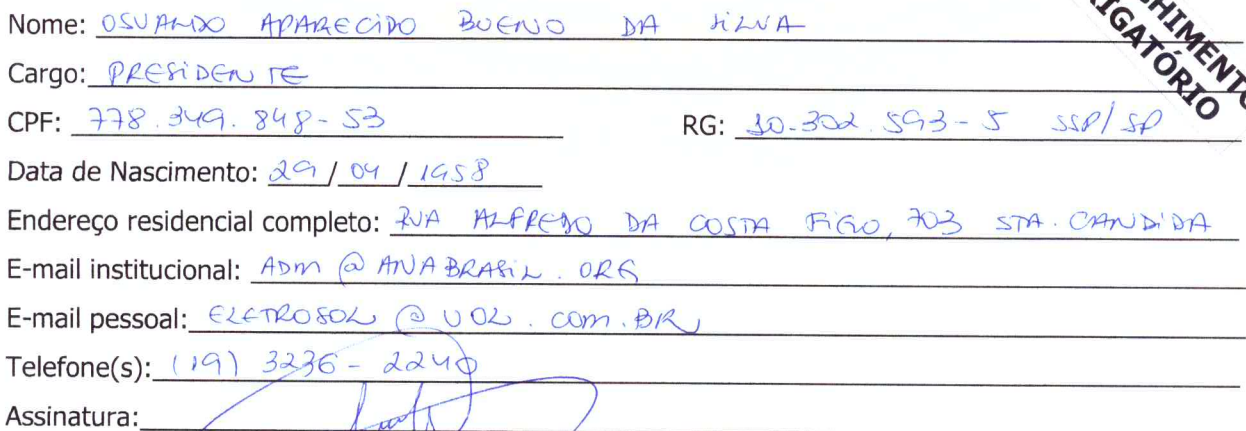 HIMENTO
IGATÓRIO
Nome: OSVALDO APARECIDO BUENO DA SILVA
Cargo: PRESIDENTE
CPF: 778.349.848-53 RG: 10.302.593-5 SSP/SP
Data de Nascimento: 29/04/1958
Endereço residencial completo: RUA ALFREDO DA COSTA FIGO, 703 STA. CANDIDA
E-mail institucional: ADM @ ANABRASIL.ORG
E-mail pessoal: ELETROSOL @ UOL.COM.BR
Telefone(s): (19) 3236-2240
Assinatura: